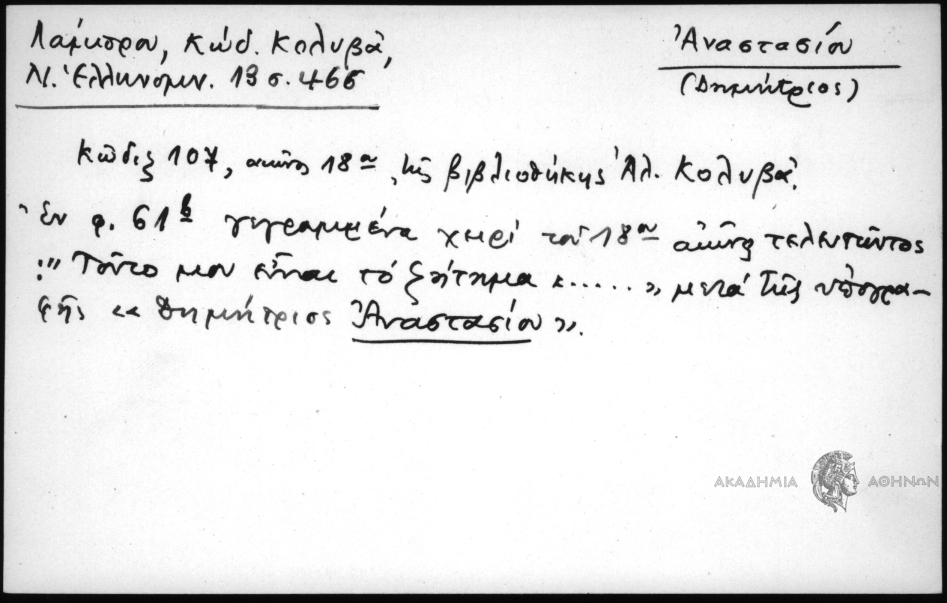 Λάμπρου, Κώδ. Κολυβᾶ,
Ν. Ἑλληνομν. 19 σ. 466
Ἀναστασίου
(Δημήτριος)
Κῶδιξ 107, αἰῶνος 18ου τῆς βιβλιοθήκης Ἀλ. Κολυβᾶ.
Ἐν φ. 61β γεγραμμένα χειρί τοῦ 18ου αἰῶνος τελευτῶντος
:" Τοῦτο μου εἶναι τό ζήτημα κ...... » μετά τῆς ὑπογρα-
φῆς « Δημήτριος Ἀναστασίου ».
ΑΚΑΔΗΜΙΑ ΑΘΗΝΩΝ